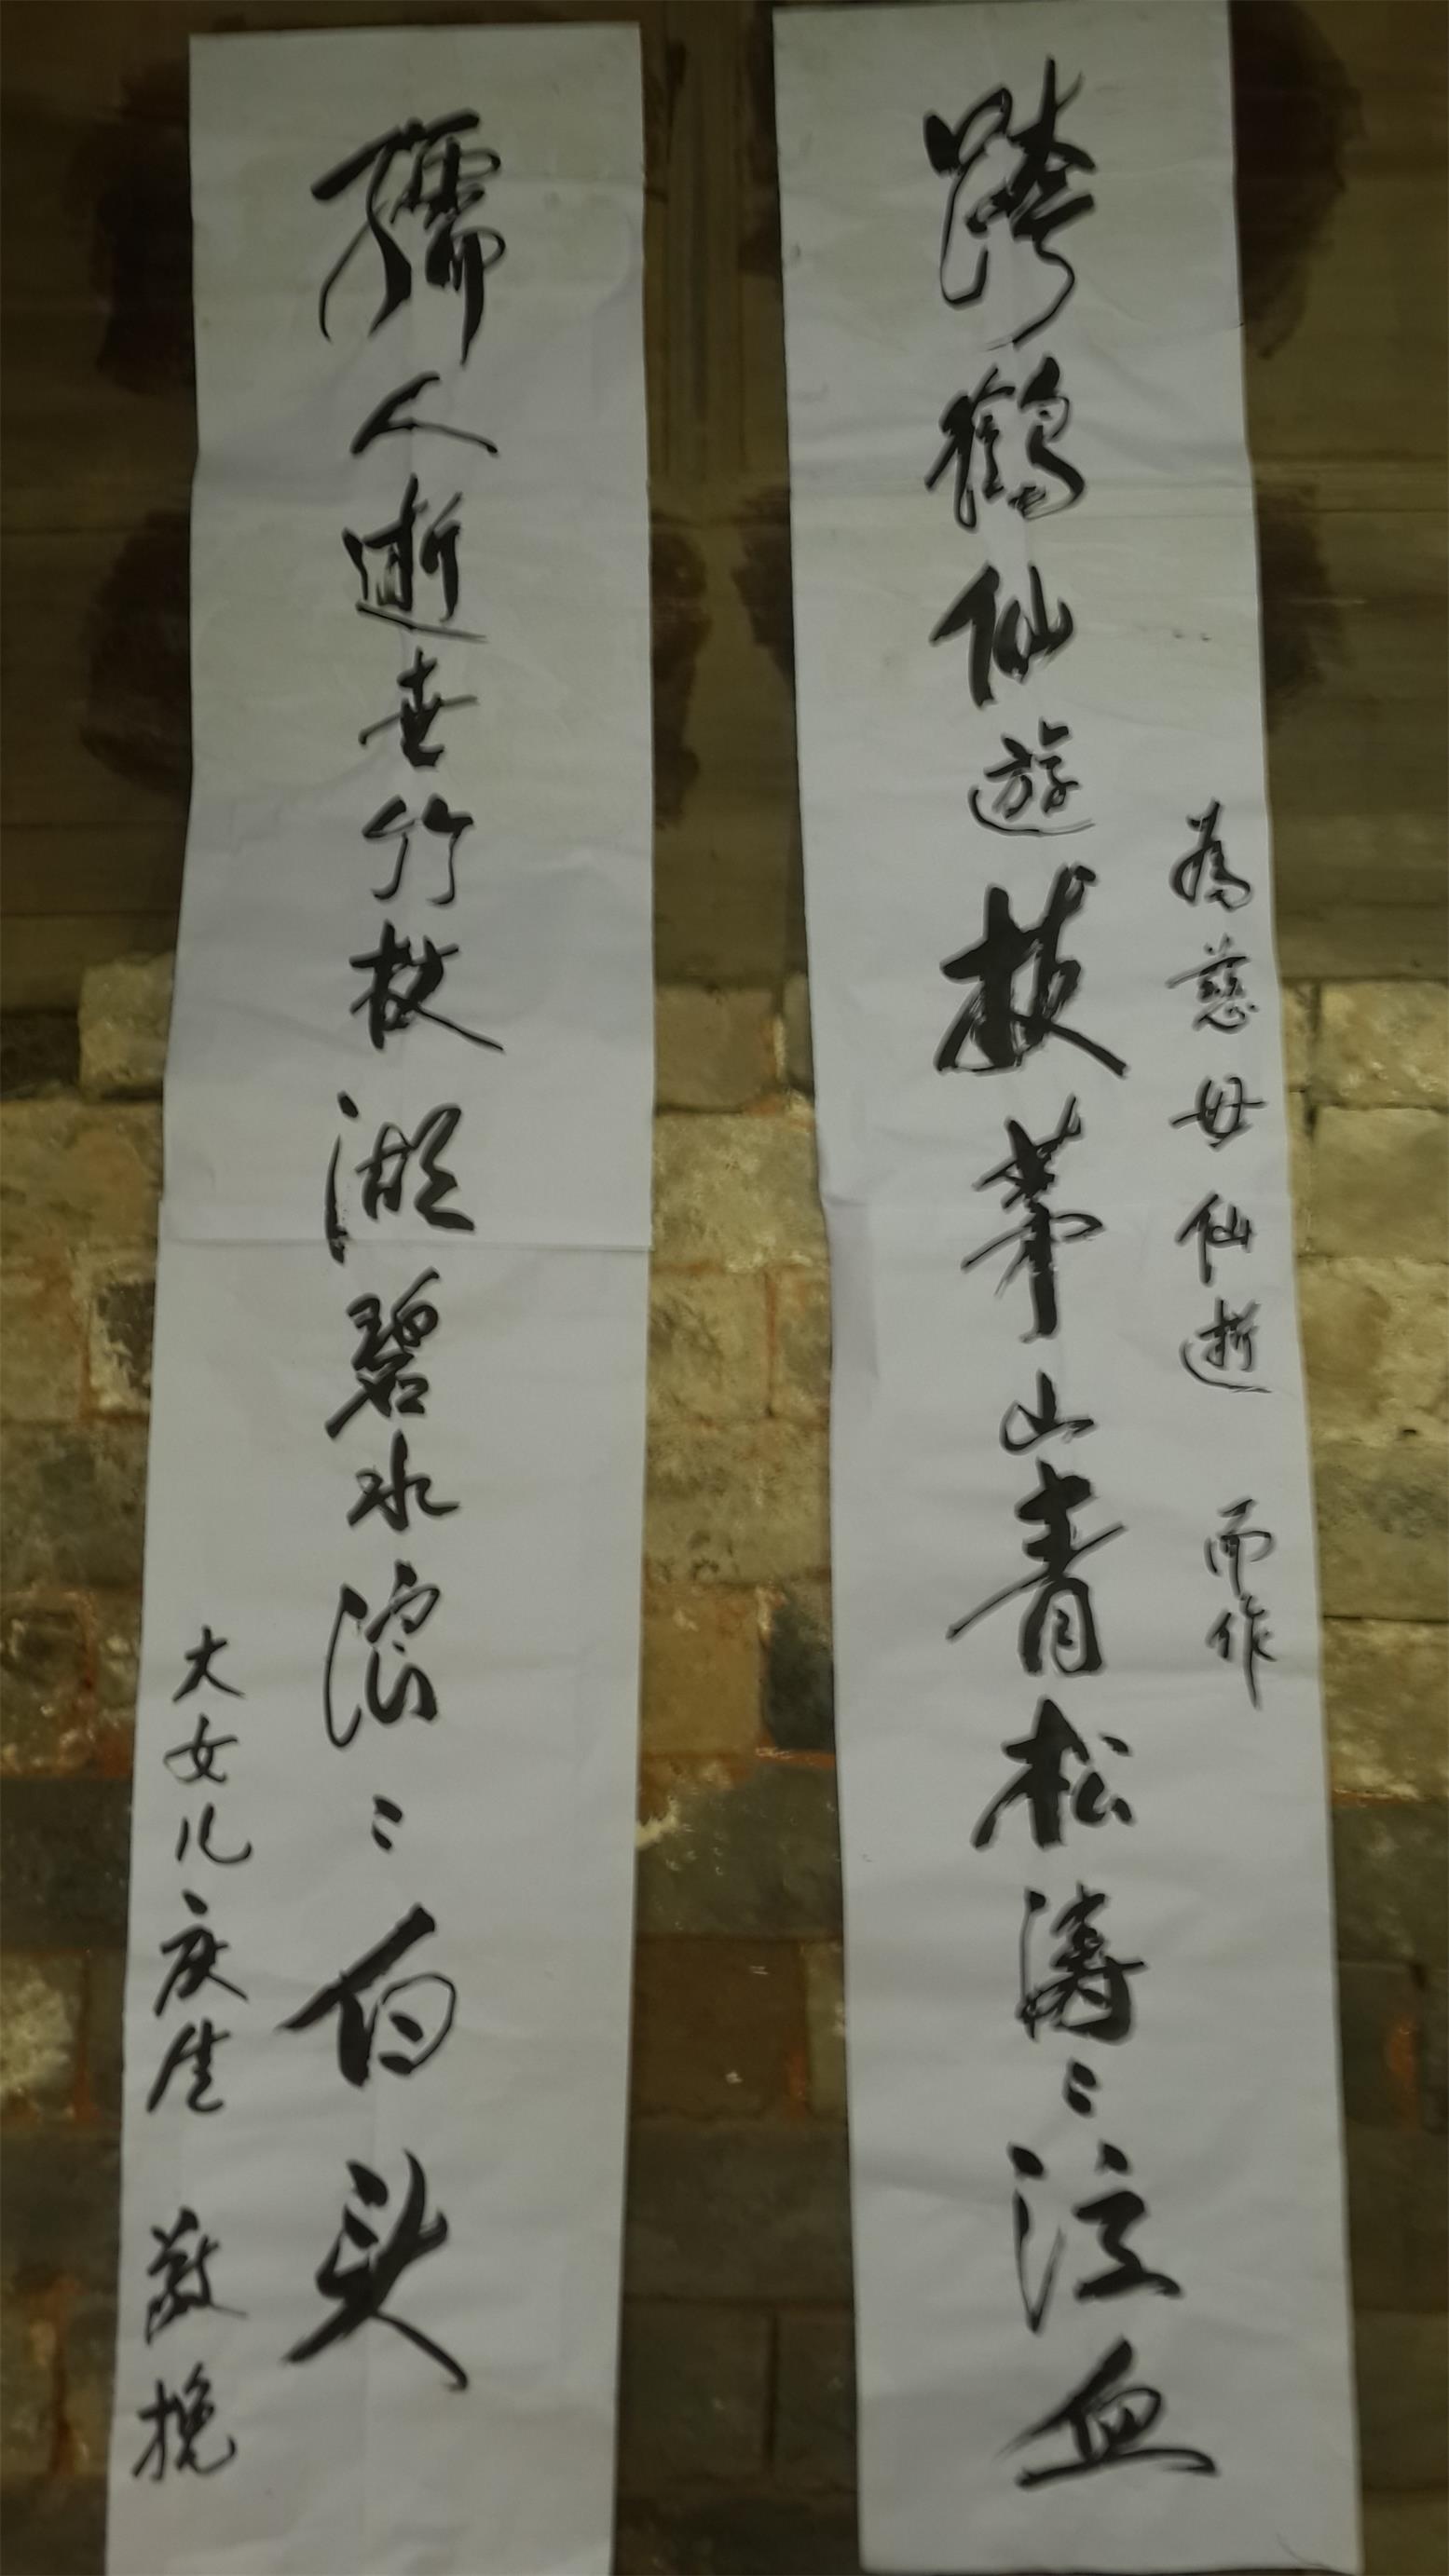 为慈母仙逝 而作
跨鹤仙遊扶茅山青松涛〻泣血
孺人逝世竹杖湖碧水浪〻白头
大女儿庆生 敬挽